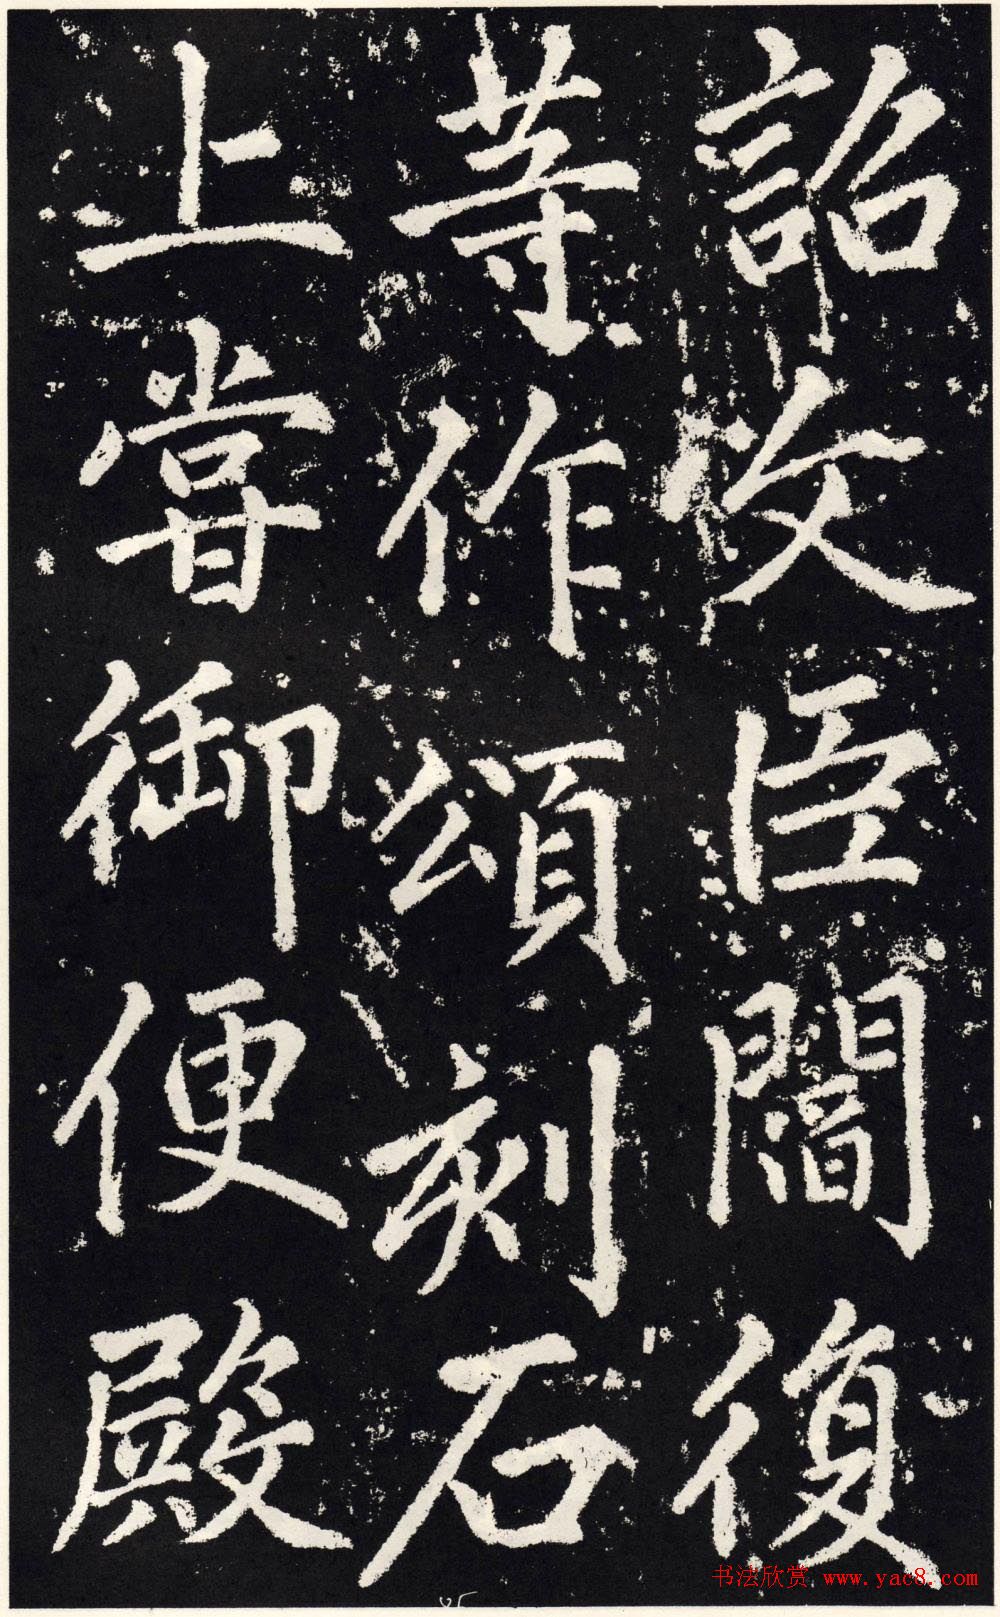 詔文臣闔復
等作頌刻石
上嘗御便殿
书法欣赏 www.yac8.com